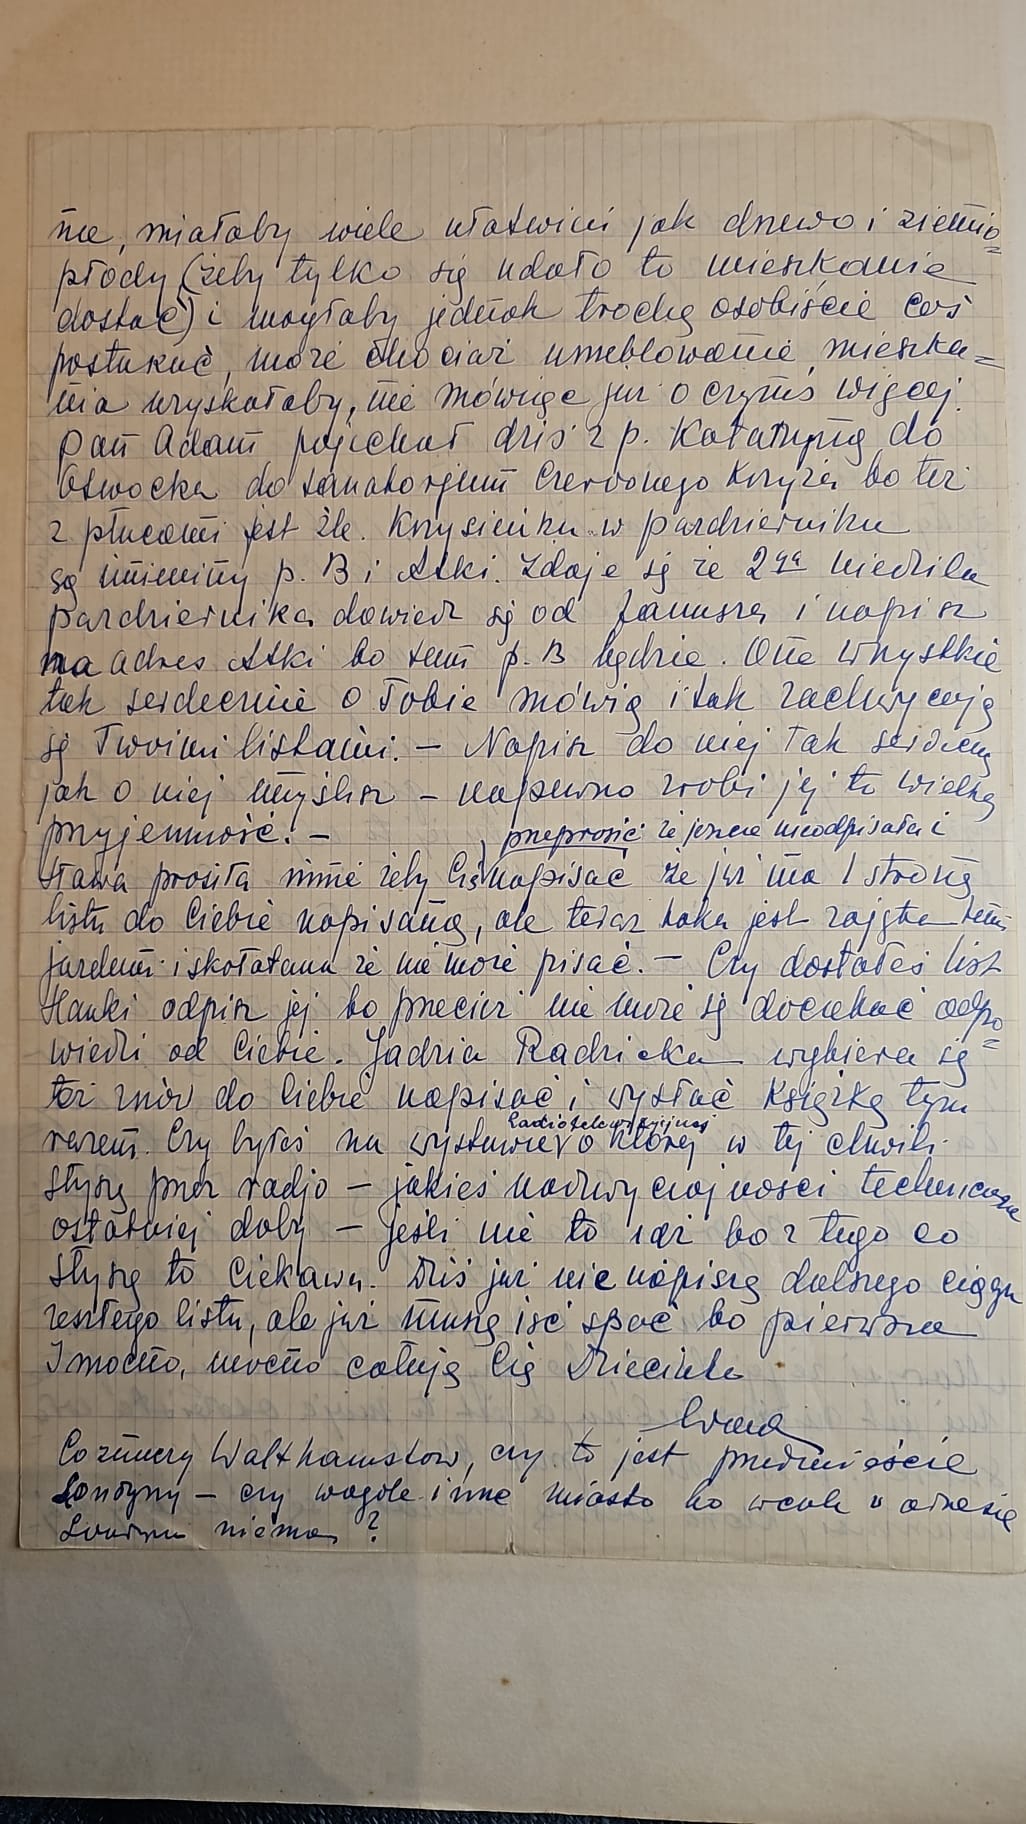 nie, miałaby wiele ułatwień jak drzewo i ziemio=
płody (żeby tylko się udało to mieszkanie
dostać) i mogłaby jednak trochę osobiście coś
postukać, może chociaż umeblowanie mieszka=
nia uzyskałaby, nie mówiąc już o czymś więcej.
Pan Adam pojechał dziś z p. Katarzyną do
Otwocka do sanatorjum Czerwonego Krzyża bo też
z płucami jest źle. Krysieńku w październiku
są imieniny p. B i Atki. Zdaje się że 2ga niedziela
października dowiedz się od Janusza i napisz
na adres Atki bo tam p. B będzie. One wszystkie
tak serdecznie o Tobie mówią i tak zachwycają
się Twoimi listami. — Napisz do niej tak serdeczn
jak o niej myślisz — napewno zrobi jej to wielką
przyjemność. —
, przeprosić że jeszcze nieodpisała i
Sława prosiła mnie żeby Cię napisać że już ma 1 stronę
listu do Ciebie napisaną, ale teraz taka jest zajęta tem
i skołatana że nie może pisać. — Czy dostałeś list
Hanki odpisz jej bo przecież nie może się doczekać odpo=
wiedzi od Ciebie. Jadzia Radzicka wybiera się
też znów do Ciebie napisać i wysłać książkę tym
razem. Czy byłeś na wystawie radiotelewizyjnej o której w tej chwili
słyszę przez radjo — jakieś nadzwyczajności techniczne
ostatniej doby — jeśli nie to idź bo z tego co
słyszę to ciekawa. Dziś już nie napiszę dalszego ciągu
zeszłego listu, ale już muszę iść spać bo pierwsza
I mocno, mocno całuję Cię Dziecinko
Co znaczy Walthamstow, czy to jest przedmieście
Londynu — czy wogóle inne miasto bo wcale w adresie
Londynu niema ?